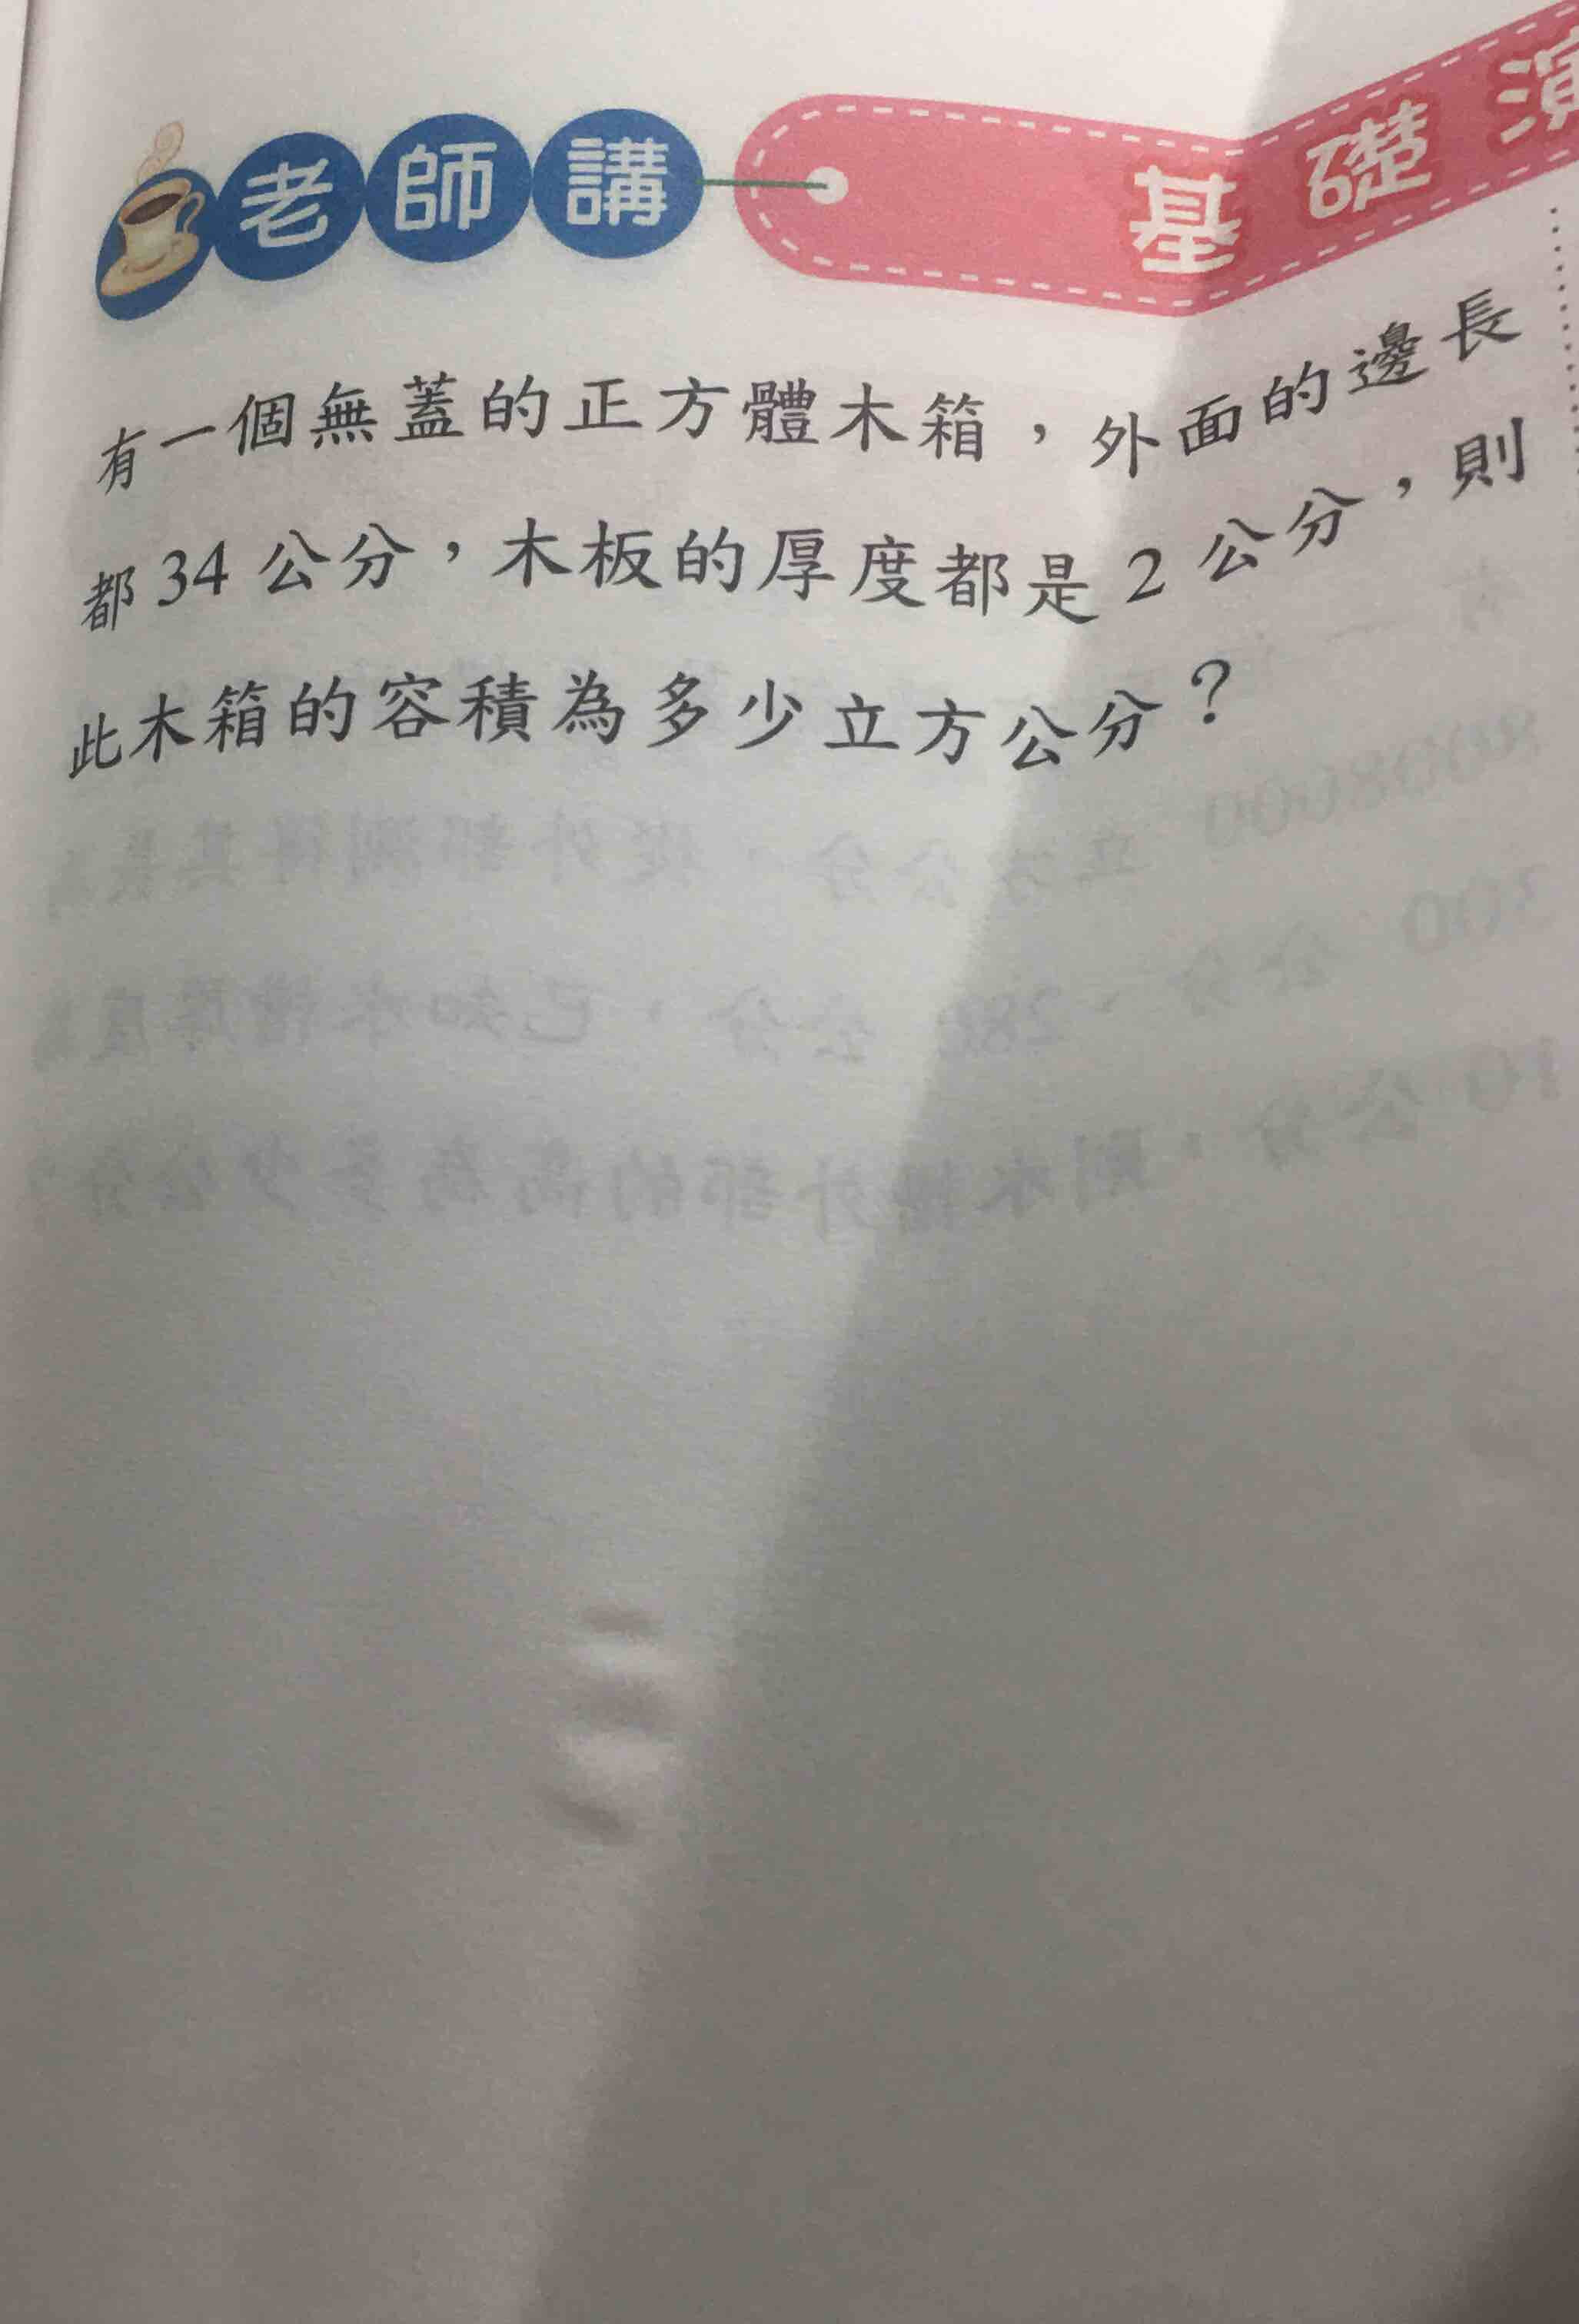 老師講
基礎演
有一個無蓋的正方體木箱，外面的邊長
都34公分，木板的厚度都是2公分，則
此木箱的容積為多少立方公分？